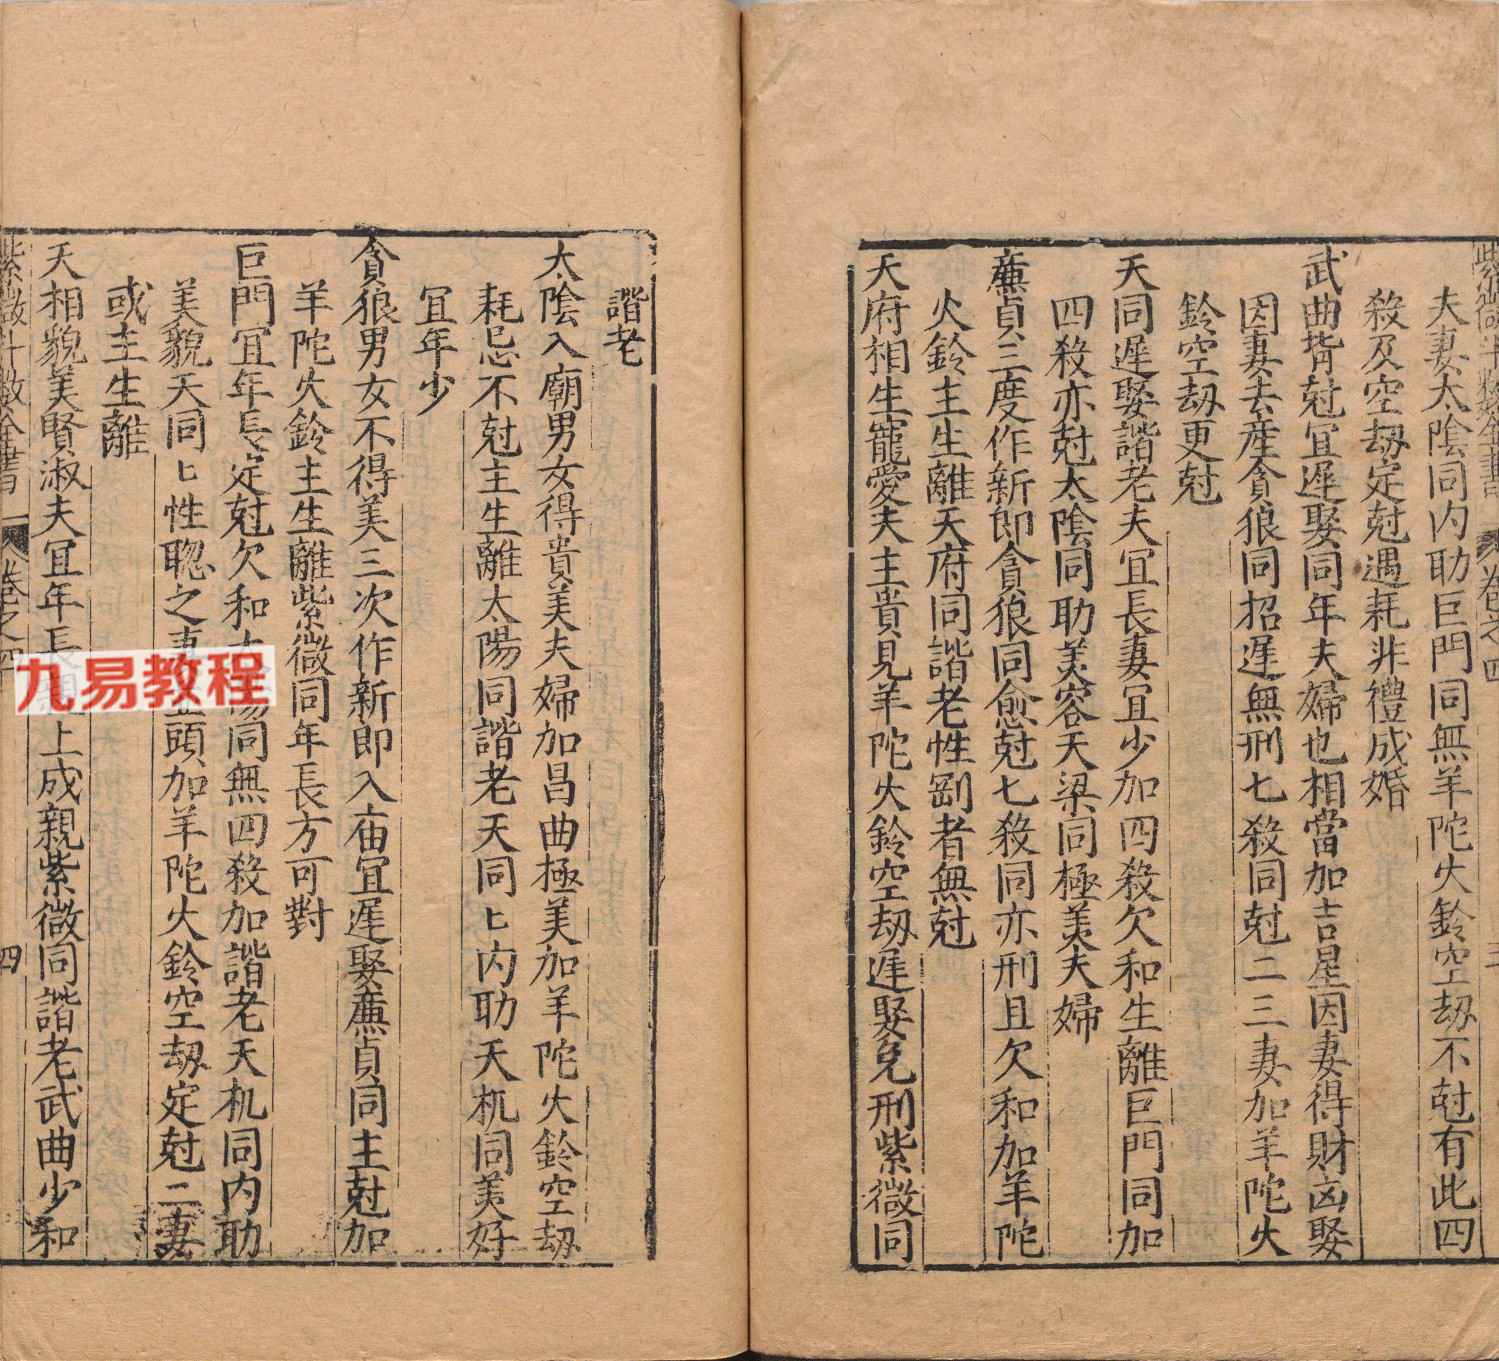 紫微斗數全書 卷之四 三
夫妻太陰同內助巨門同無羊陀火鈴空劫不尅有此四
殺及空劫定尅遇耗非禮成婚
武曲背尅冝遲娶同年夫婦也相當加吉星因妻得財凶娶
因妻去產貪狼同招遲無刑七殺同尅二三妻加羊陀火
鈴空劫更尅
天同遲娶諧老夫冝長妻冝少加四殺欠和生離巨門同加
四殺亦尅太陰同助美容天梁同極美夫婦
廉貞三度作新郎貪狼同愈尅七殺同亦刑且欠和加羊陀
火鈴主生離天府同諧老性剛者無尅
天府相生寵愛夫主貴見羊陀火鈴空劫遲娶免刑紫微同
諧老
太陰入廟男女得貴美夫婦加昌曲極美加羊陀火鈴空劫
耗忌不尅主生離太陽同諧老天同匕內助天机同美好
冝年少
貪狼男女不得美三次作新郎入庙冝遲娶廉貞同主尅加
羊陀火鈴主生離紫微同年長方可對
巨門冝年長定尅欠和太陽同無四殺加諧老天机同內助
美貌天同匕性聰之妻頭加羊陀火鈴空劫定尅二妻
或主生離
天相貌美賢淑夫冝年長上成親紫微同諧老武曲少和
紫微斗數全書 卷之四 四
九易教程